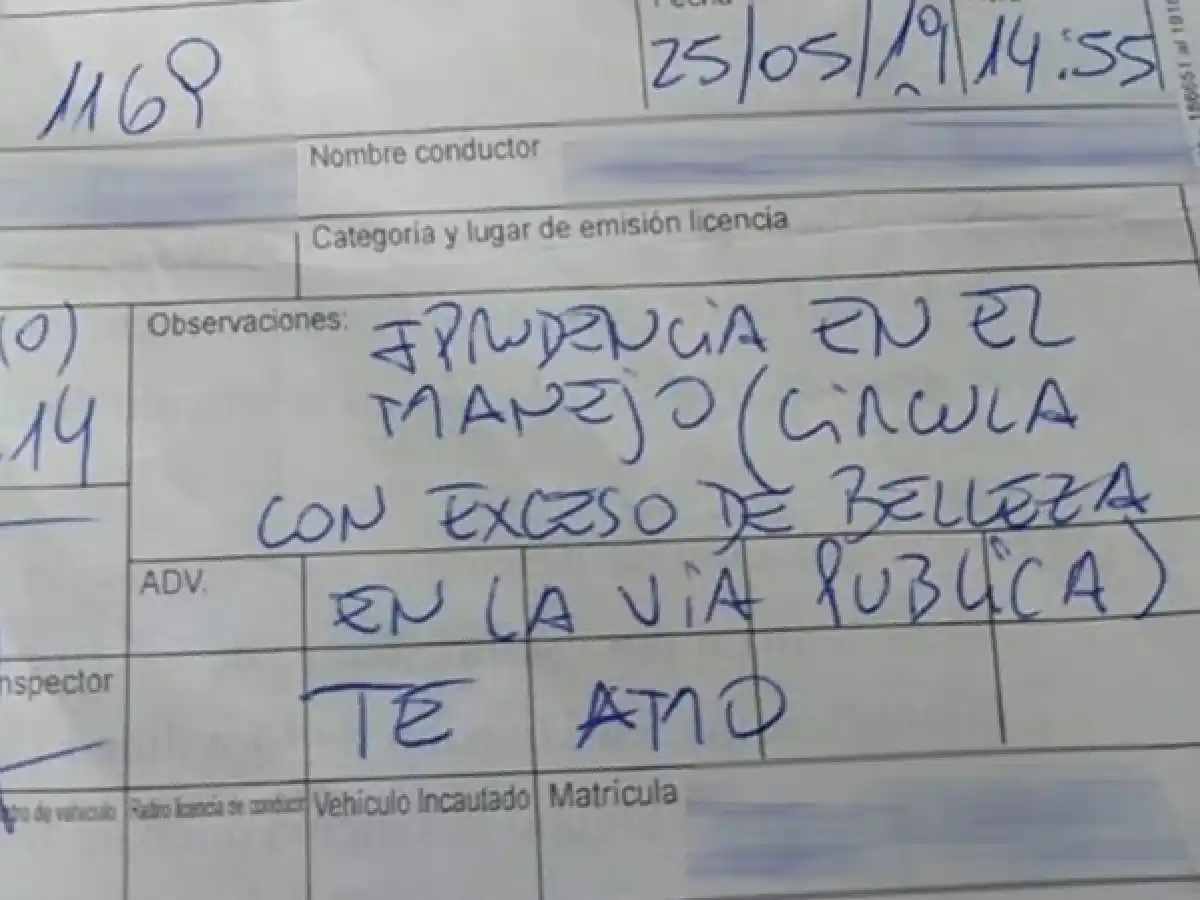 Fecha
1169 25/05/19 14:55
Nombre conductor
Categoria y lugar de emisión licencia
(0) Observaciones: IPRUDENCIA EN EL
14 MANEJO (CIRCULA
CON EXCESO DE BELLEZA
ADV. EN LA VIA PUBLICA)
nspector TE AMO
de vehiculo Retiro licencia de conducir Vehiculo Incautado Matricula